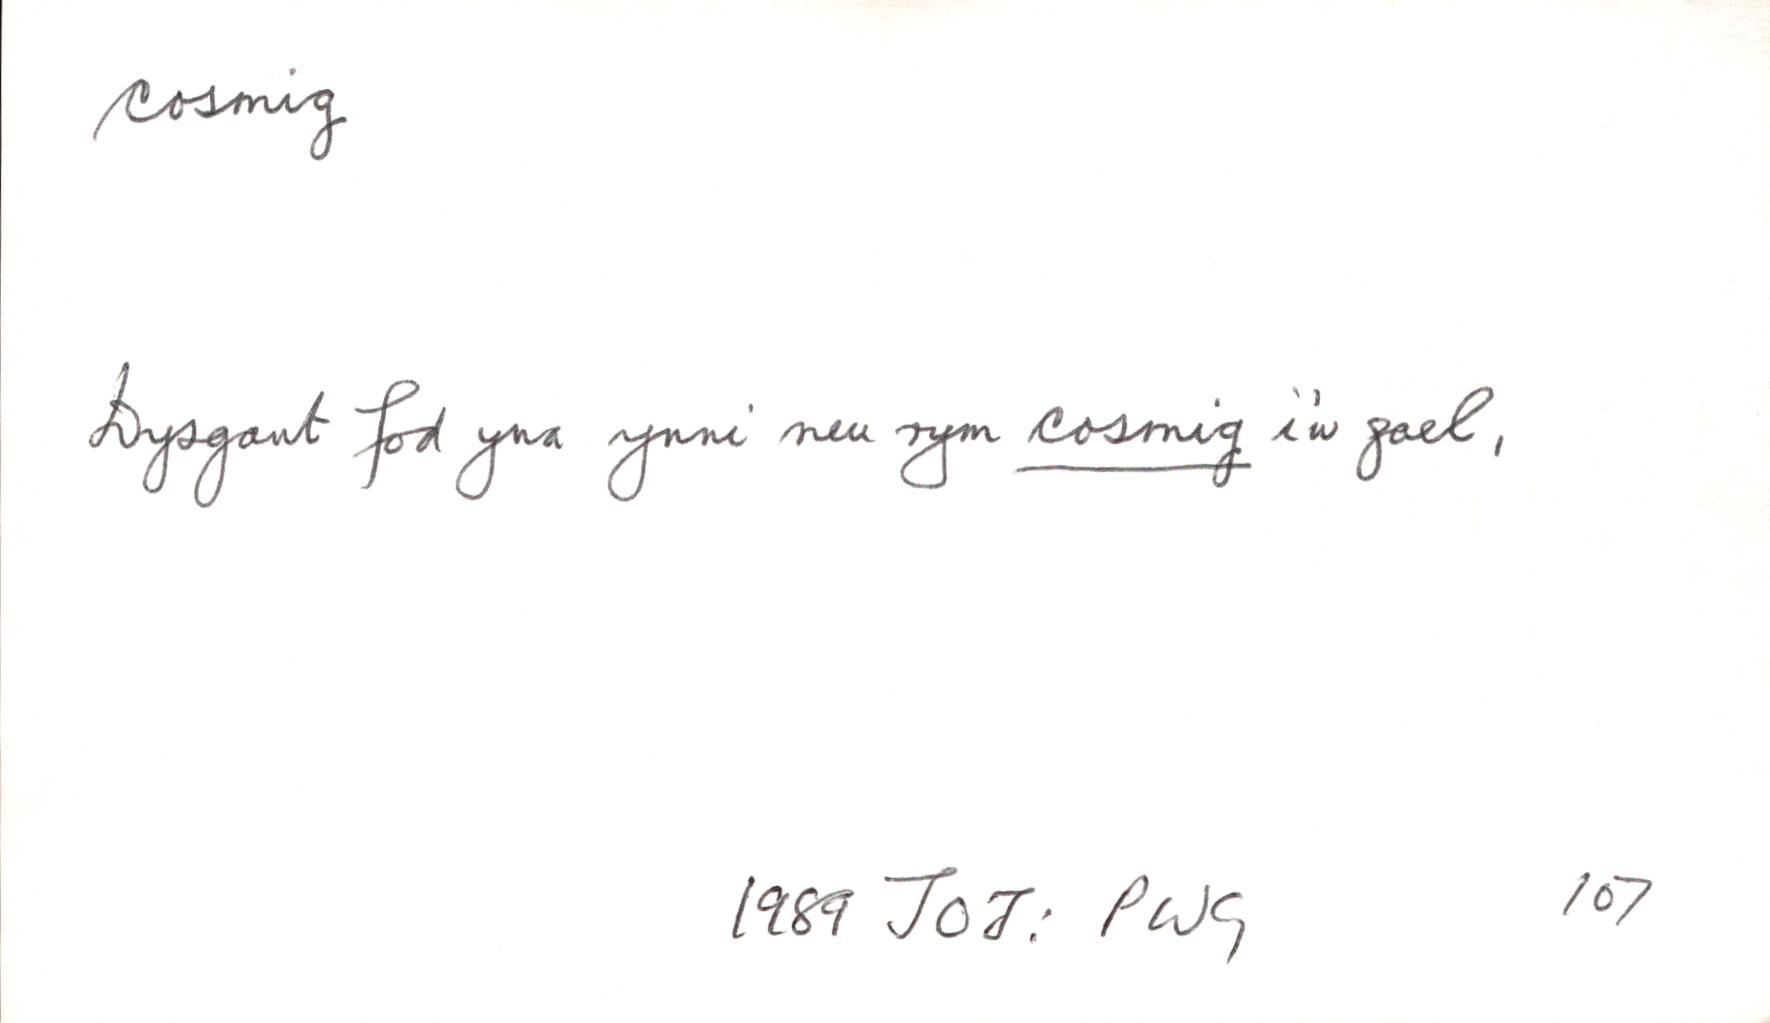 cosmig
Dysgant fod yna ynni neu rym cosmig i'w gael,
1989 JOJ: PWG 107